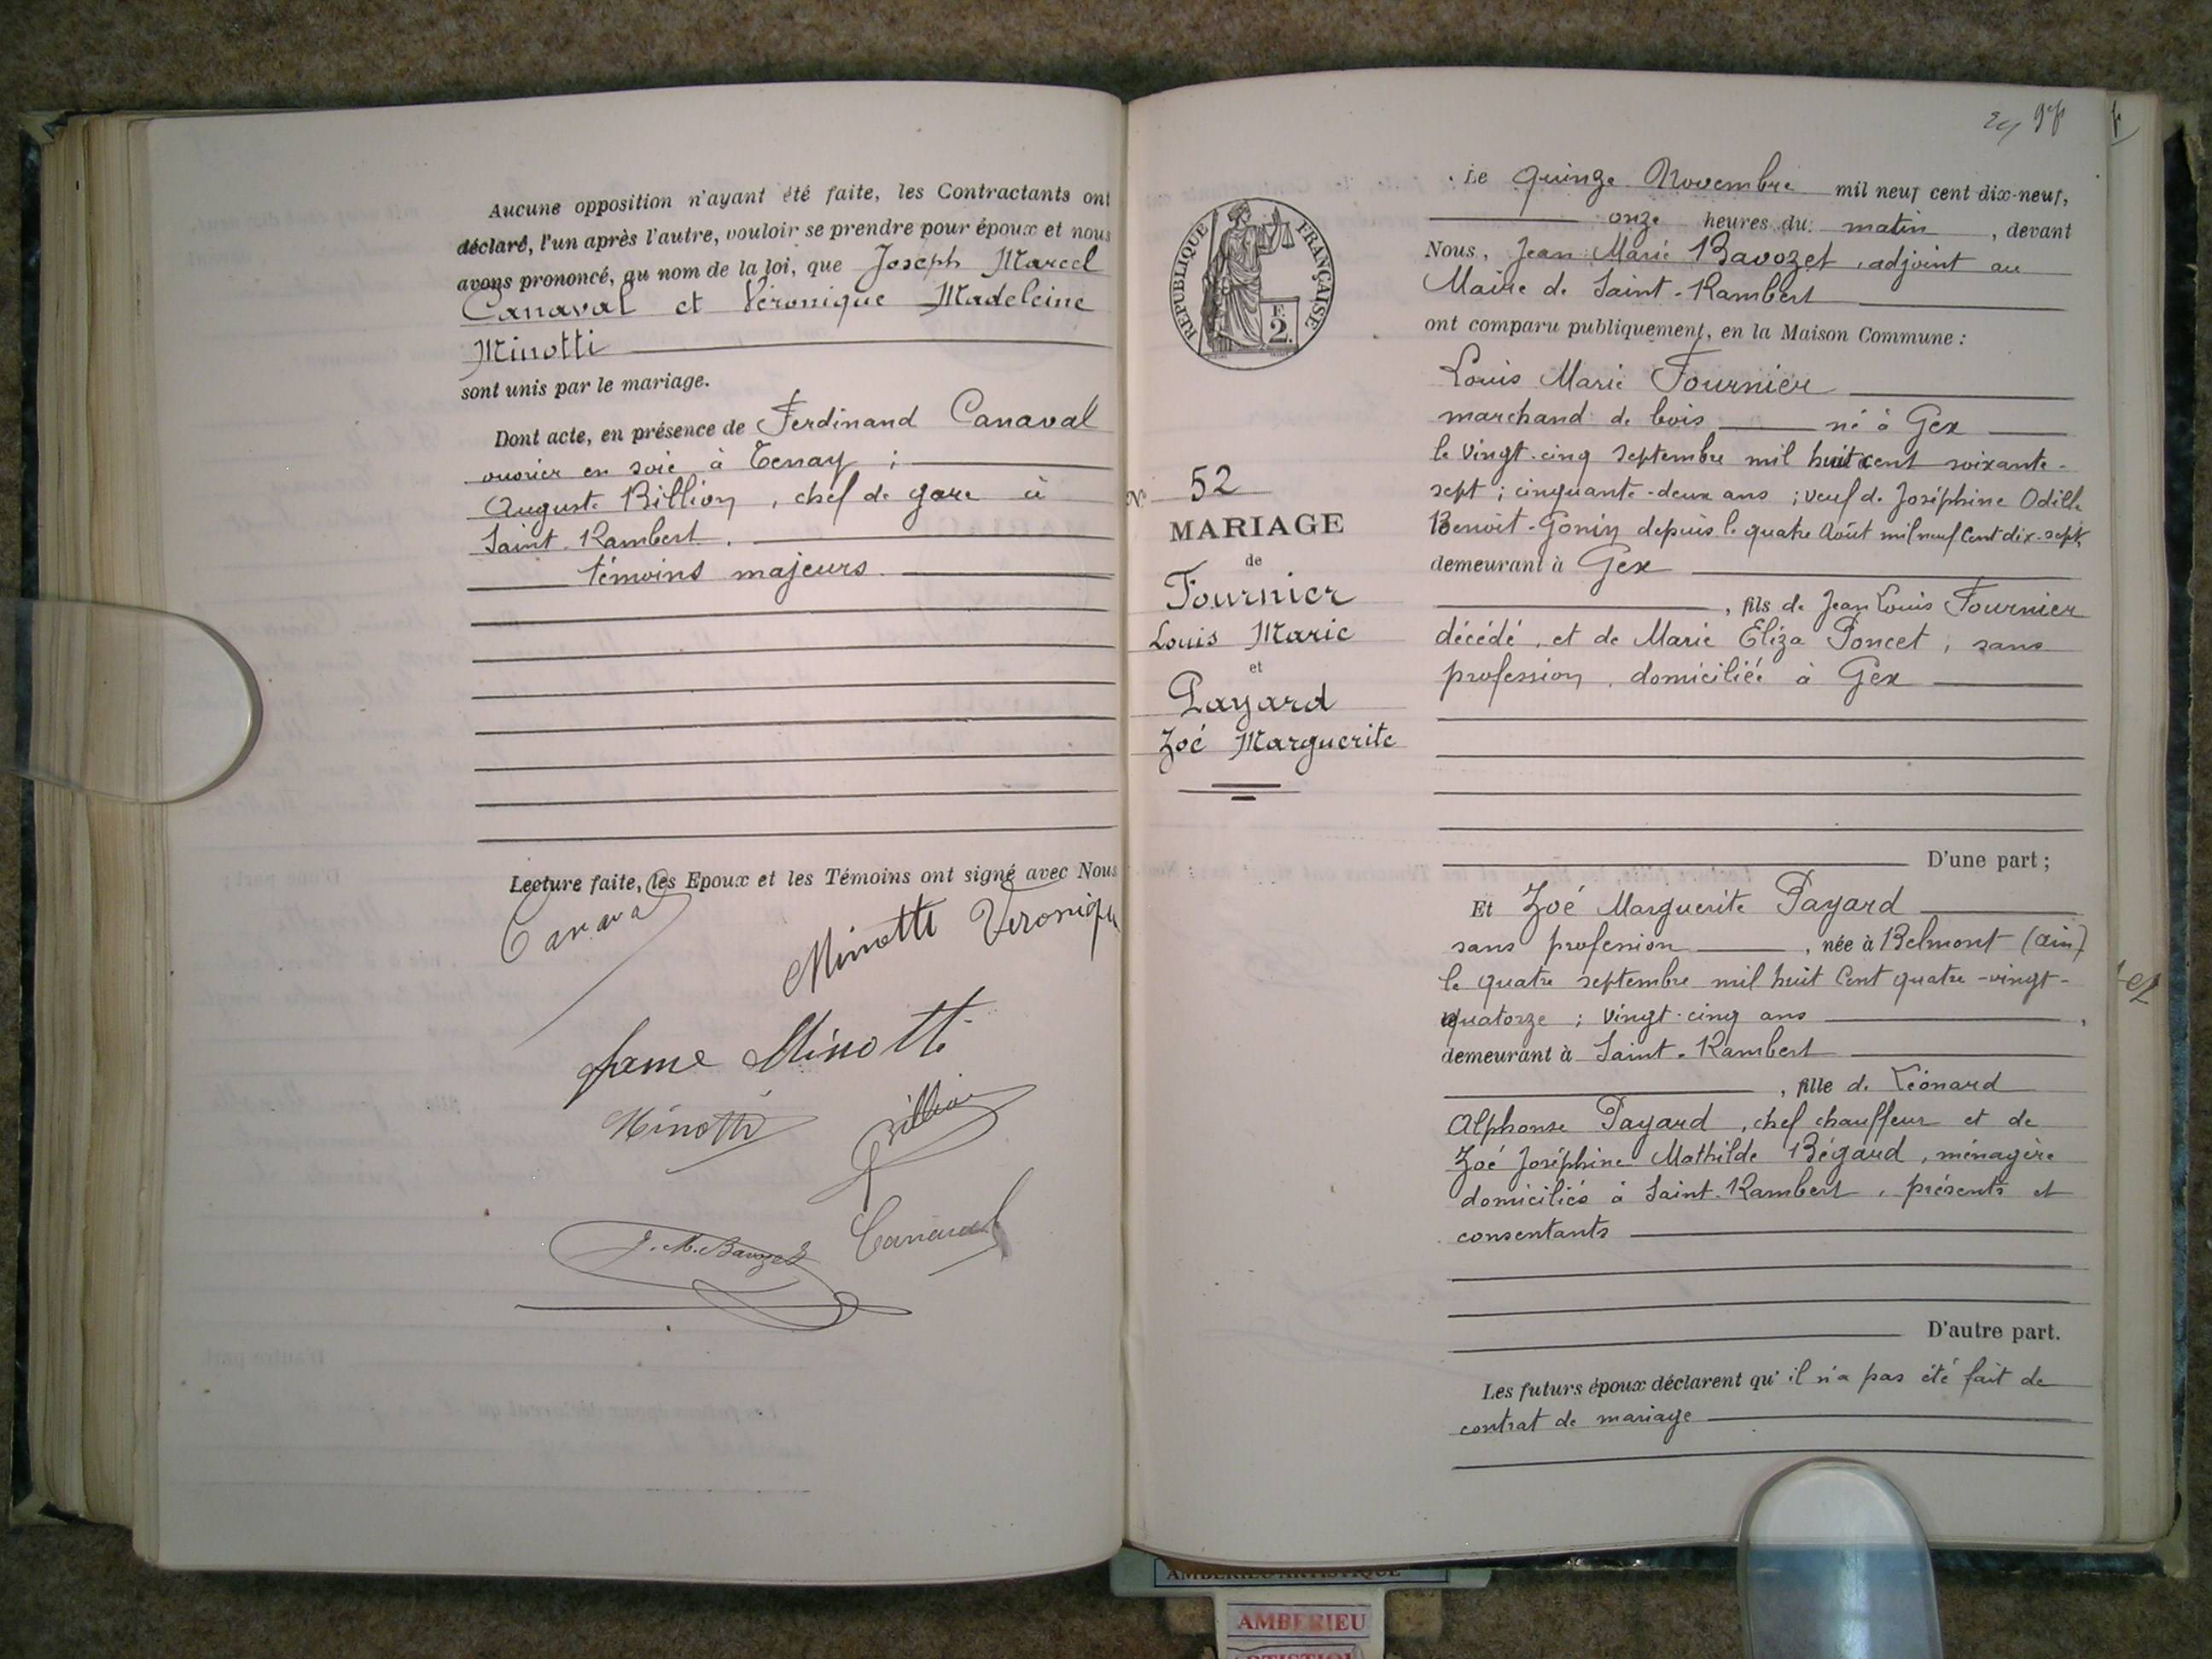 Aucune opposition n'ayant été faite, les Contractants ont
déclaré, l'un après l'autre, vouloir se prendre pour époux et nous
avons prononcé, au nom de la loi, que Joseph Marcel
Canaval et Véronique Madeleine
Minotti
sont unis par le mariage.
Dont acte, en présence de Ferdinand Canaval
ouvrier en soie à Tenay ;
Auguste Billion, chef de gare à
Saint-Rambert.
témoins majeurs.
Lecture faite, les Epoux et les Témoins ont signé avec Nous
Canaval
Minotti Veronique
fame Minotti
Minotti
Billion
Canaval
J. M. Bavozet
RÉPUBLIQUE FRANÇAISE
F.
2.
N° 52
MARIAGE
de
Fournier
Louis Marie
et
Payard
Zoé Marguerite
Le quinze Novembre mil neuf cent dix-neuf,
onze heures du matin, devant
Nous, Jean Marie Bavozet, adjoint au
Maire de Saint-Rambert
ont comparu publiquement, en la Maison Commune :
Louis Marie Fournier
marchand de bois né à Gex
le vingt-cinq Septembre mil huit cent soixante-
sept ; cinquante-deux ans ; veuf de Joséphine Odille
Benoit-Gonin depuis le quatre Août mil neuf Cent dix-sept,
demeurant à Gex
, fils de Jean Louis Fournier
décédé, et de Marie Eliza Poncet, sans
profession, domiciliée à Gex
D'une part ;
Et Zoé Marguerite Payard
sans profession, née à Belmont (Ain)
le quatre septembre mil huit Cent quatre-vingt-
quatorze ; vingt-cinq ans,
demeurant à Saint-Rambert
, fille de Léonard
Alphonse Payard, chef chauffeur et de
Zoé Joséphine Mathilde Bégard, ménagère
domiciliés à Saint-Rambert, présents et
consentants
D'autre part.
Les futurs époux déclarent qu'il n'a pas été fait de
contrat de mariage
AMBERIEU ARTISTIQUE
AMBERIEU